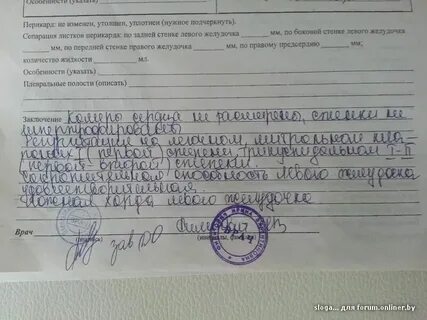 Особенности (указать)
Перикард: не изменен, утолщен, уплотнен (нужное подчеркнуть).
Сепарация листков перикарда: по задней стенке левого желудочка
мм, по боковой стенке левого желудочка
мм, по передней стенке правого желудочка мм, по правому предсердию мм;
количество жидкости мл.
Особенности (указать)
Плевральные полости (описать)
Заключение Камеры сердца не расширены, стенки не
гипертрофированы
Регургитация на легочном, митральном кла-
панах I первой степени, трикуспидальном I-II
первой второй степени.
Сократительная способность левого желудочка
удовлетворительная.
Ложная хорда левого желудочка
Врач
(подпись) (инициалы, фамилия)
зав РО
sloga... для forum.onliner.by